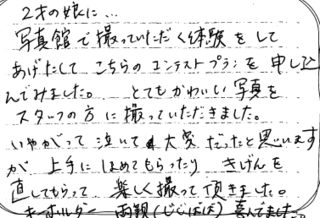 2才の娘に…
写真館で撮っていただく体験をして
あげたくて こちらのコンテストプランを申し込
んでみました。 とてもかわいい写真を
スタッフの方に撮っていただきました。
いやがって泣いて大変だったと思います
が 上手にほめてもらったり きげんを
直してもらって 楽しく撮って頂きました。
キーホルダー 両親(じじばば) 喜んでました。